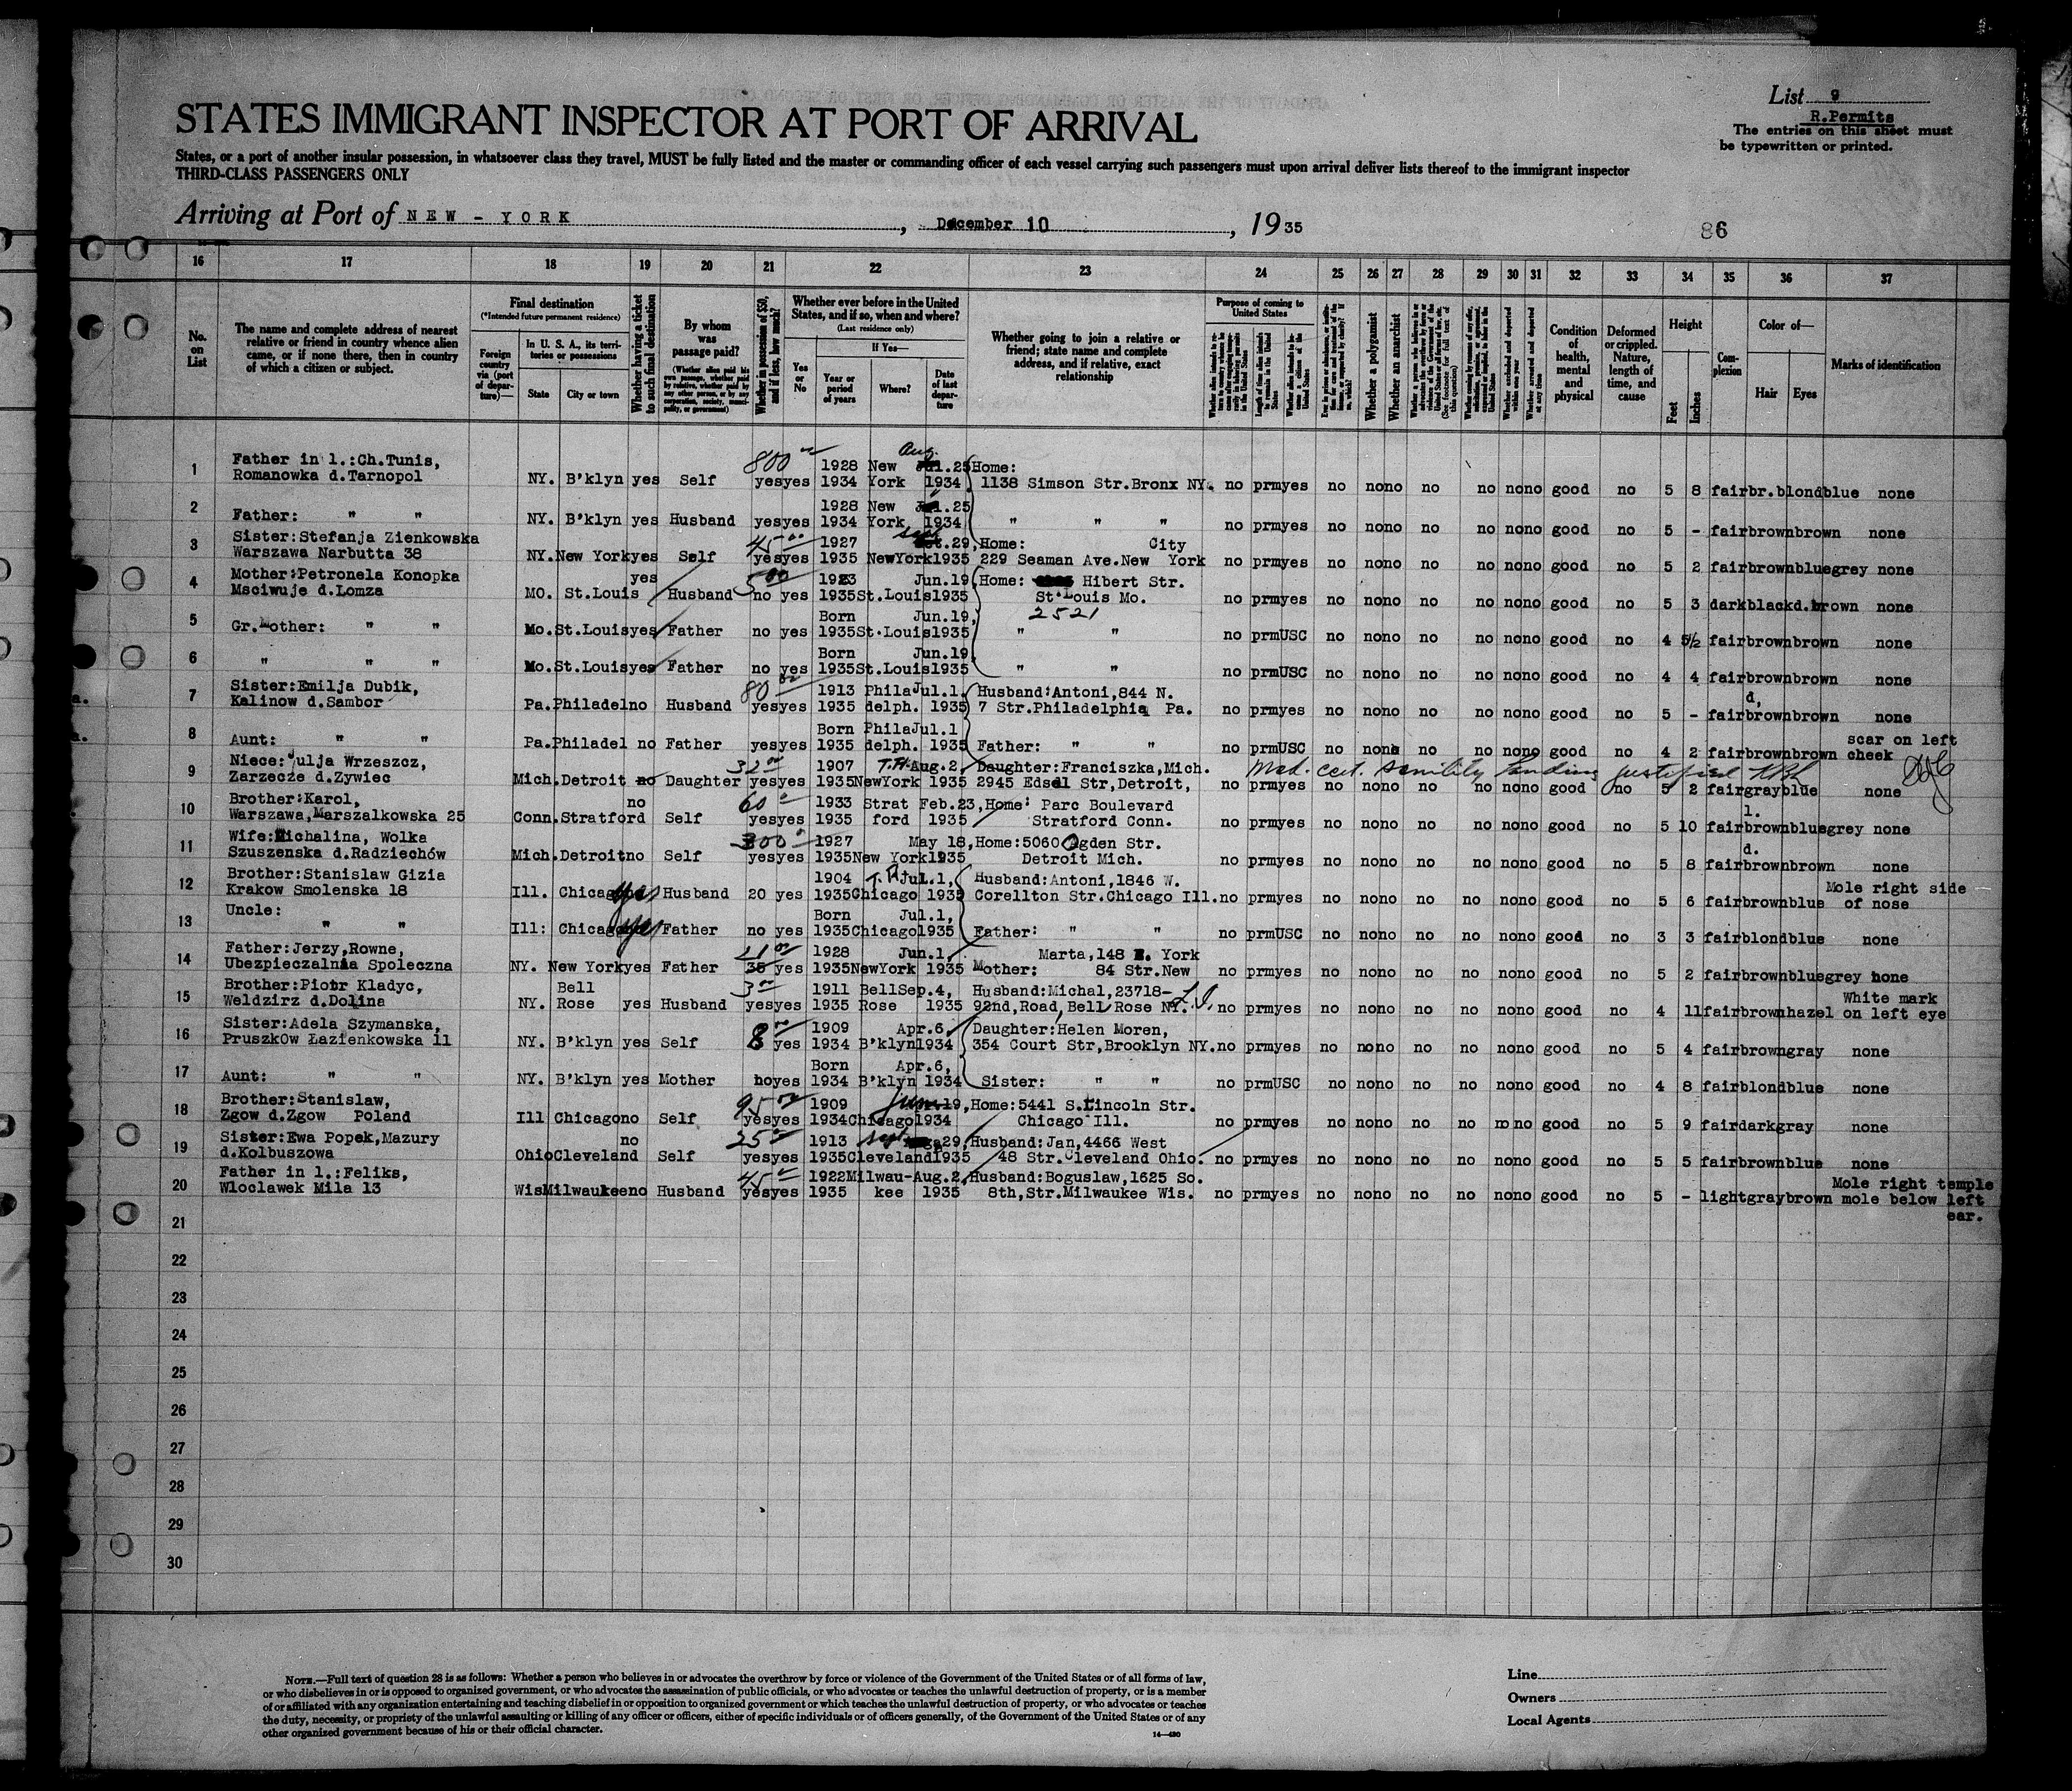 List 9
R.Permits
The entries on this sheet must
be typewritten or printed.
STATES IMMIGRANT INSPECTOR AT PORT OF ARRIVAL
States, or a port of another insular possession, in whatsoever class they travel, MUST be fully listed and the master or commanding officer of each vessel carrying such passengers must upon arrival deliver lists thereof to the immigrant inspector
THIRD-CLASS PASSENGERS ONLY
Arriving at Port of NEW - YORK, December 10, 1935
86
16 17 18 19 20 21 22 23 24 25 26 27 28 29 30 31 32 33 34 35 36 37
No. on List
The name and complete address of nearest relative or friend in country whence alien came, or if none there, then in country of which a citizen or subject.
Final destination
(*Intended future permanent residence)
Foreign country via (port of departure)—
In U. S. A., its territories or possessions
State
City or town
Whether having a ticket to such final destination
By whom was passage paid?
(Whether alien paid his own passage, whether paid by relative, whether paid by any other person, or by any corporation, society, municipality, or government)
Whether in possession of $50, and if less, how much?
Whether ever before in the United States, and if so, when and where?
(Last residence only)
Yes or No
If Yes—
Year or period of years
Where?
Date of last departure
Whether going to join a relative or friend; state name and complete address, and if relative, exact relationship
Purpose of coming to United States
Length of time alien intends to remain in the United States
Whether a polygamist
Whether an anarchist
Condition of health, mental and physical
Deformed or crippled. Nature, length of time, and cause
Height
Feet
Inches
Complexion
Color of—
Hair
Eyes
Marks of identification
1 Father in l.:Ch.Tunis, 800 1928 New Aug. 25 Home:
Romanowka d.Tarnopol NY. B'klyn yes Self yes yes 1934 York 1934 1138 Simson Str.Bronx NY. no prm yes no no no no no no no good no 5 8 fair br.blond blue none
2 1928 New 25
Father: " " NY. B'klyn yes Husband yes yes 1934 York 1934 " " " no prm yes no no no no no no no good no 5 - fair brown brown none
3 Sister:Stefanja Zienkowska 45 1927 Sept. 29, Home: City
Warszawa Narbutta 38 NY. New York yes Self yes yes 1935 New York 1935 229 Seaman Ave.New York no prm yes no no no no no no no good no 5 2 fair brown bluegrey none
4 Mother:Petronela Konopka yes 5 1923 Jun.19, Home: Hibert Str.
Msciwuje d.Lomza MO. St.Louis Husband no yes 1935 St.Louis 1935 St.Louis Mo. no prm yes no no no no no no no good no 5 3 dark black d.brown none
5 Born Jun.19, 2521
Gr.Mother: " " Mo. St.Louis yes Father no yes 1935 St.Louis 1935 " " no prm USC no no no no no no no good no 4 5½ fair brown brown none
6 Born Jun.19,
" " " Mo. St.Louis yes Father no yes 1935 St.Louis 1935 " " no prm USC no no no no no no no good no 4 4 fair brown brown none
7 Sister:Emilja Dubik, 80 1913 Phila Jul.1. Husband:Antoni,844 N. d,
Kalinow d.Sambor Pa. Philadel no Husband yes yes 1935 delph. 1935 7 Str.Philadelphia Pa. no prm yes no no no no no no no good no 5 - fair brown brown none
8 Born Phila Jul.1 scar on left
Aunt: " " Pa. Philadel no Father yes yes 1935 delph. 1935 Father: " " no prm USC no no no no no no no good no 4 2 fair brown brown cheek
9 Niece:Julja Wrzeszcz, 32 1907 T.H. Aug.2, Daughter:Franciszka,Mich. Med. cert. senility landing justified
Zarzecze d.Zywiec Mich. Detroit no Daughter yes yes 1935 NewYork 1935 2945 Edsel Str,Detroit, no prm yes no no no no no no no good no 5 2 fair gray blue none
10 Brother:Karol, no 60 1933 Strat Feb.23, Home: Parc Boulevard l.
Warszawa,Marszalkowska 25 Conn. Stratford Self yes yes 1935 ford 1935 Stratford Conn. no prm yes no no no no no no no good no 5 10 fair brown bluegrey none
11 Wife:Michalina, Wolka 300 1927 May 18, Home:5060 Ogden Str. d.
Szuszenska d.Radziechów Mich. Detroit no Self yes yes 1935 New York 1935 Detroit Mich. no prm yes no no no no no no no good no 5 8 fair brown brown none
12 Brother:Stanislaw Gizia 1904 T.H. Jul.1, Husband:Antoni,1846 W. Mole right side
Krakow Smolenska 18 Ill. Chicago yes Husband 20 yes 1935 Chicago 1935 Corellton Str.Chicago Ill. no prm yes no no no no no no no good no 5 6 fair brown blue of nose
13 Uncle: Born Jul.1,
" " Ill: Chicago yes Father no yes 1935 Chicago 1935 Father: " " no prm USC no no no no no no no good no 3 3 fair blond blue none
14 Father:Jerzy,Rowne, 21 1928 Jun.1, Marta,148 E. York
Ubezpieczalnia Spoleczna NY. New York yes Father 35 yes 1935 NewYork 1935 Mother: 84 Str.New no prm yes no no no no no no no good no 5 2 fair brown bluegrey none
15 Brother:Piotr Kladyc, Bell 3 1911 Bell Sep.4, Husband:Michal,23718- White mark
Weldzirz d.Dolina NY. Rose yes Husband yes yes 1935 Rose 1935 92nd,Road,Bell Rose NY. L.I. no prm yes no no no no no no no good no 4 11 fair brown hazel on left eye
16 Sister:Adela Szymanska, 1909 Apr.6, Daughter:Helen Moren,
Pruszków Łazienkowska 11 NY. B'klyn yes Self 8 yes 1934 B'klyn 1934 354 Court Str,Brooklyn NY. no prm yes no no no no no no no good no 5 4 fair brown gray none
17 Born Apr.6,
Aunt: " " NY. B'klyn yes Mother no yes 1934 B'klyn 1934 Sister: " " no prm USC no no no no no no no good no 4 8 fair blond blue none
18 Brother:Stanislaw, 95 1909 June 19, Home:5441 S.Lincoln Str.
Zgow d.Zgow Poland Ill Chicago no Self yes yes 1934 Chicago 1934 Chicago Ill. no prm yes no no no no no no no good no 5 9 fair dark gray none
19 Sister:Ewa Popek,Mazury no 25 1913 Sept 29, Husband:Jan,4466 West
d.Kolbuszowa Ohio Cleveland Self yes yes 1935 Cleveland 1935 48 Str.Cleveland Ohio. no prm yes no no no no no no no good no 5 5 fair brown blue none
20 Father in l.:Feliks, 45 1922 Milwau- Aug.2, Husband:Boguslaw,1625 So. Mole right temple
Wloclawek Mila 13 Wis Milwaukee no Husband yes yes 1935 kee 1935 8th,Str.Milwaukee Wis. no prm yes no no no no no no no good no 5 - light gray brown mole below left
21 ear.
22
23
24
25
26
27
28
29
30
NOTE.—Full text of question 28 is as follows: Whether a person who believes in or advocates the overthrow by force or violence of the Government of the United States or of all forms of law,
or who disbelieves in or is opposed to organized government, or who advocates the assassination of public officials, or who advocates or teaches the unlawful destruction of property, or is a member
of or affiliated with any organization entertaining and teaching disbelief in or opposition to organized government or which teaches the unlawful destruction of property, or who advocates or teaches
the duty, necessity, or propriety of the unlawful assaulting or killing of any officer or officers, either of specific individuals or of officers generally, of the Government of the United States or of any
other organized government because of his or their official character.
14—430
Line
Owners
Local Agents